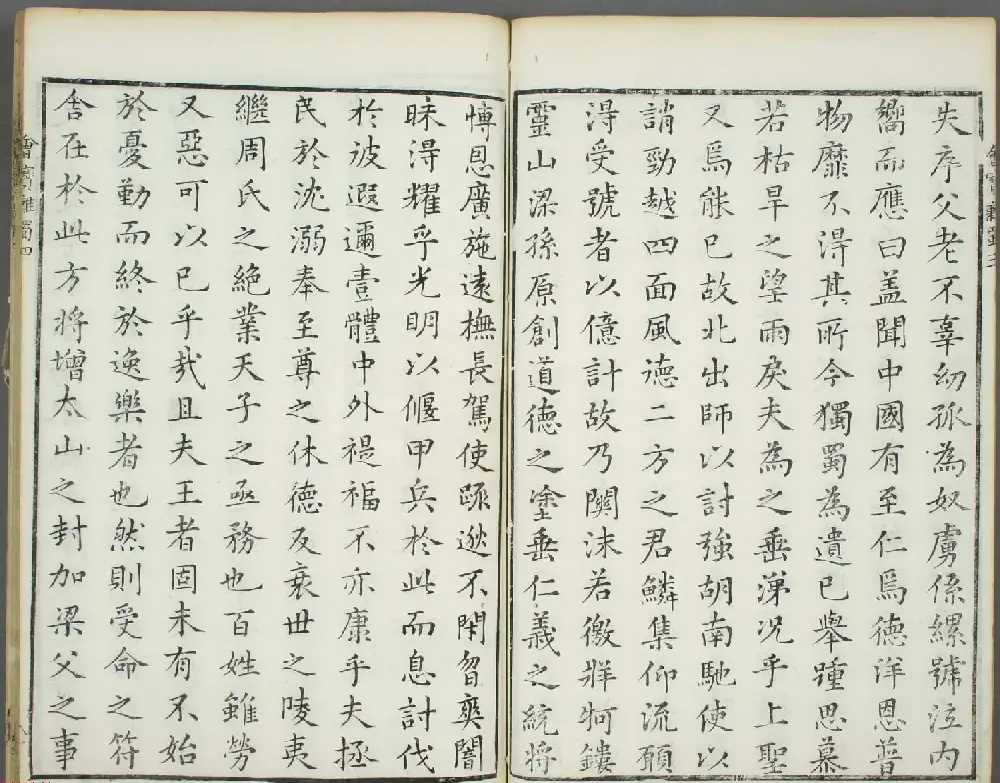 失序父老不辜幼孤為奴虜係縲號泣内
嚮而應曰盖聞中國有至仁焉德洋恩普
物靡不得其所今獨蜀為遺已舉踵思慕
若枯旱之望雨戾夫為之垂涕况乎上聖
又焉能已故北出師以討強胡南馳使以
誚勁越四面風德二方之君鱗集仰流願
得受號者以億計故乃関沫若徼牂牱鏤
靈山梁孫原創道德之塗垂仁義之統將
博恩廣施遠撫長駕使疏逖不閉曶爽闇
昧得耀乎光明以偃甲兵於此而息討伐
於彼遐邇壹體中外禔福不亦康乎夫拯
民於沈溺奉至尊之休德反衰世之陵夷
繼周氏之絶業天子之亟務也百姓雖勞
又惡可以已乎哉且夫王者固未有不始
於憂勤而終於逸樂者也然則受命之符
舍在於此方將增太山之封加梁父之事